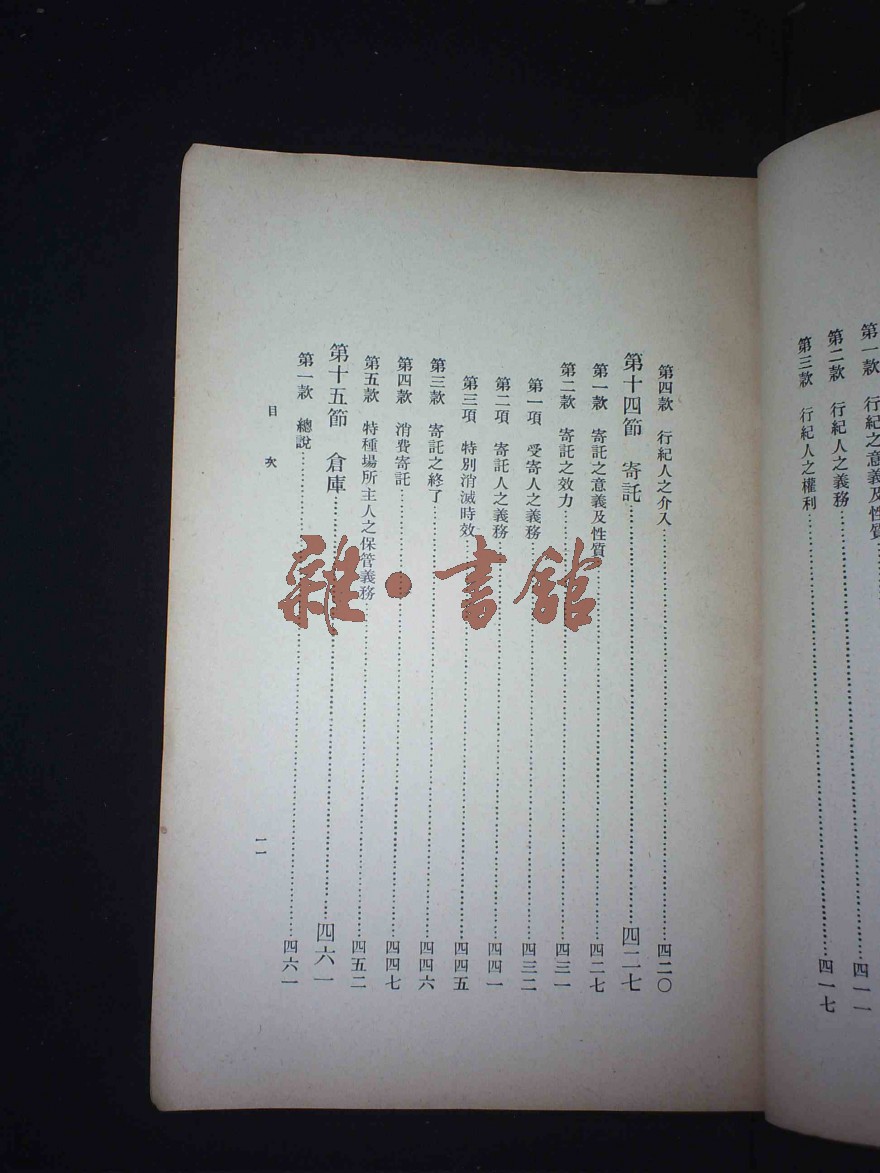 第一款　行紀之意義及性質
第二款　行紀人之義務…………四一一
第三款　行紀人之權利…………四一七
第四款　行紀人之介入…………四二〇
第十四節　寄託…………四二七
第一款　寄託之意義及性質…………四二七
第二款　寄託之效力…………四三一
第一項　受寄人之義務…………四三二
第二項　寄託人之義務…………四四一
第三項　特別消滅時效…………四四五
第三款　寄託之終了…………四四六
第四款　消費寄託…………四四七
第五款　特種場所主人之保管義務…………四五二
第十五節　倉庫…………四六一
第一款　總說…………四六一
目次
一一
雜·書館